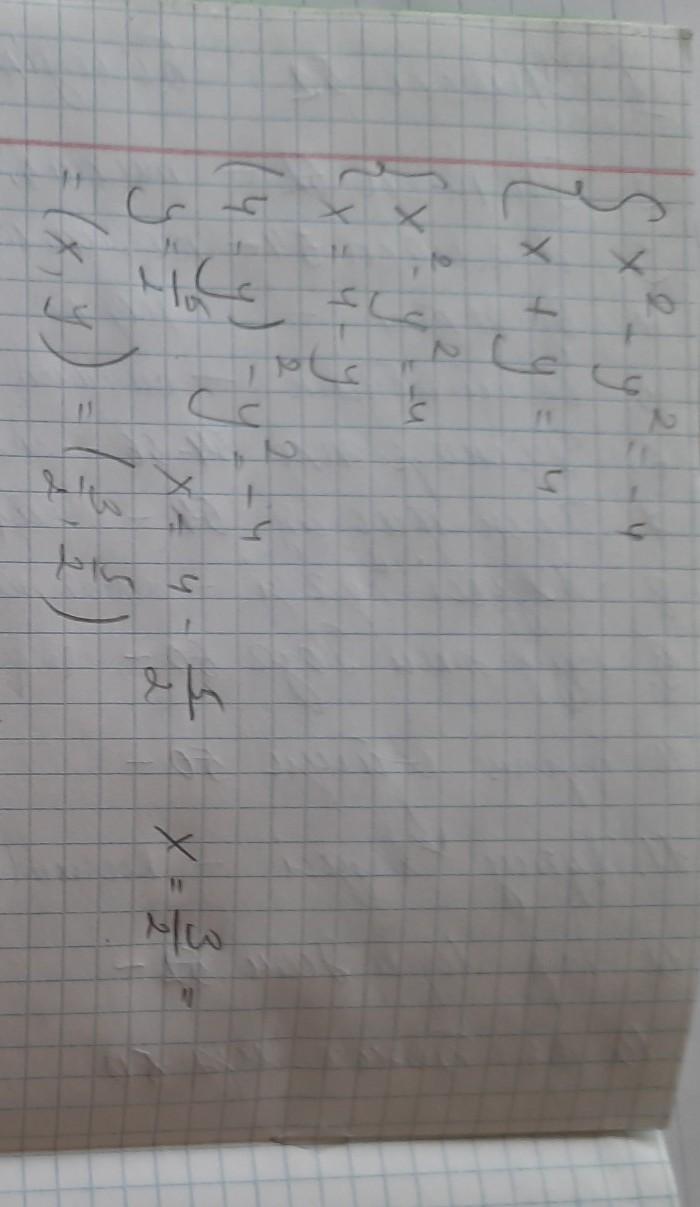 { x² - y² = -4
x + y = 4
{ x² - y² = -4
x = 4 - y
(4 - y)² - y² = -4
y = 5/2 x = 4 - 5/2 x = 3/2 =
= (x, y) = (3/2, 5/2)